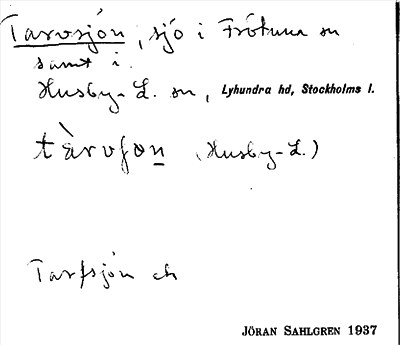 Tarvsjön, sjö i Frötuna sn
samt i
Husby-L. sn, Lyhundra hd, Stockholms l.
tàrvʃo̱n (Husby-L.)
Tarfsjön ek
JÖRAN SAHLGREN 1937